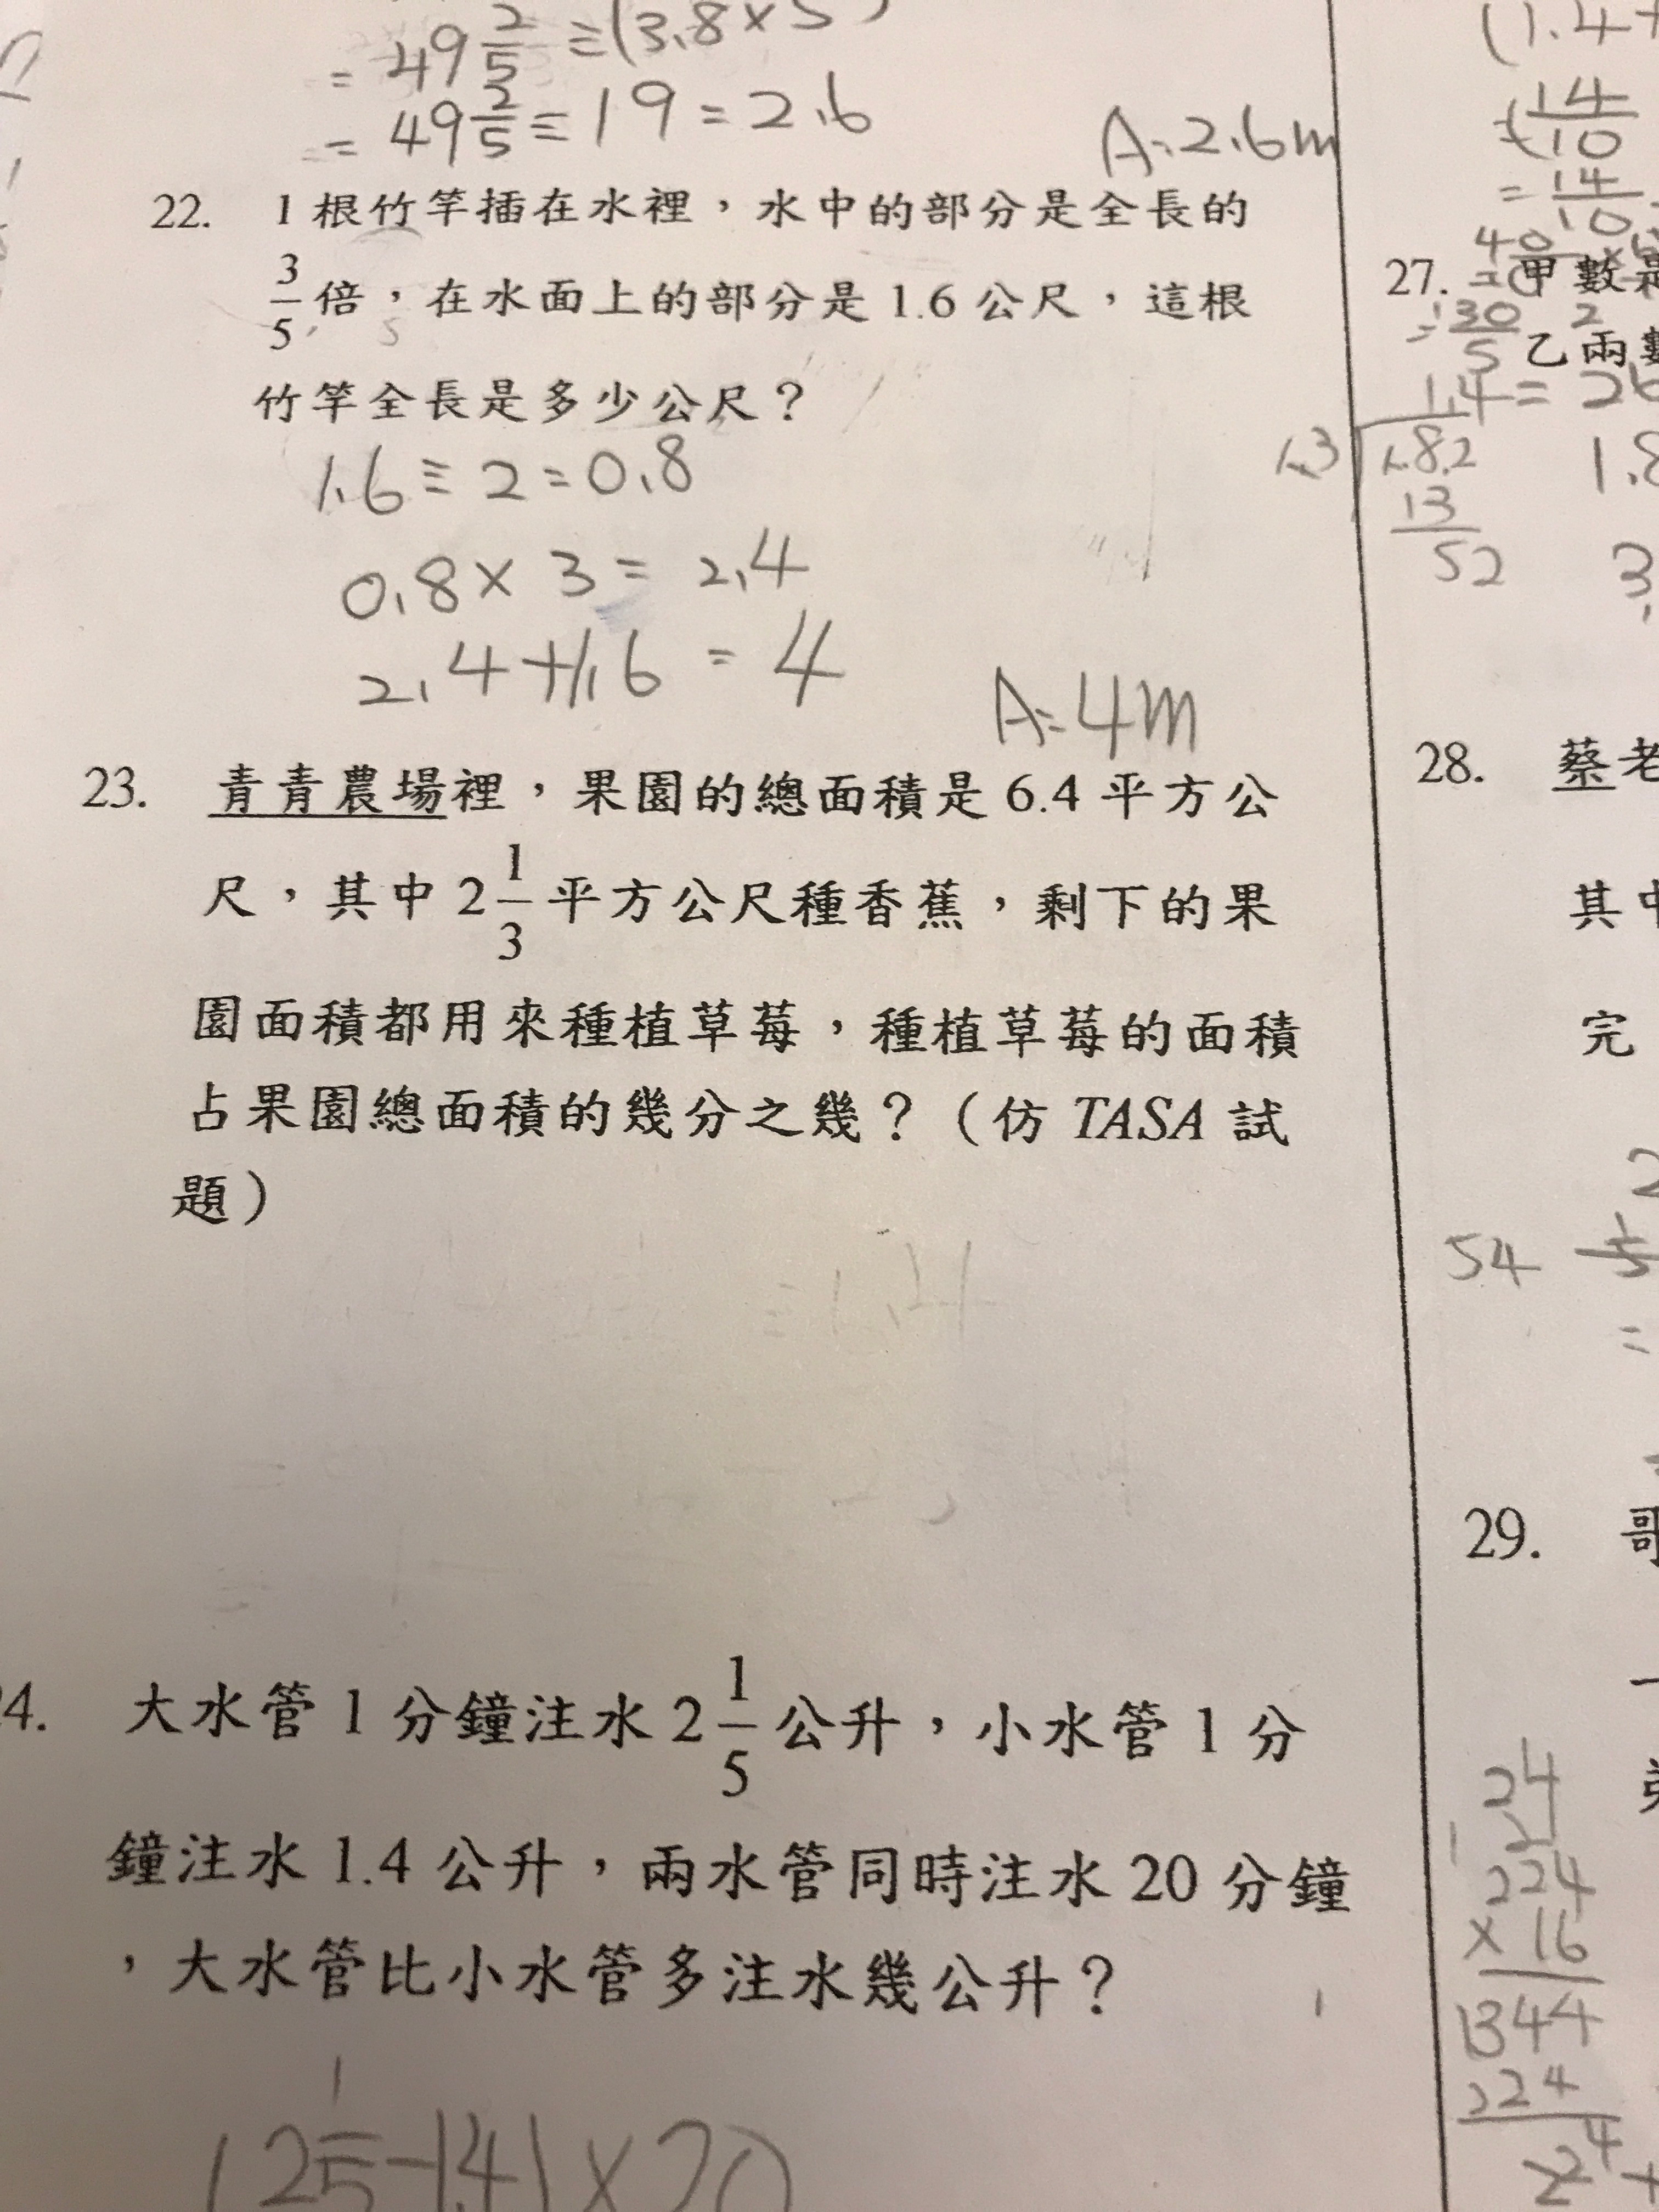 = 49 2/5 ÷ (3.8 × 5)
= 49 2/5 ÷ 19 = 2.6
A: 2.6m
22. 1 根竹竿插在水裡，水中的部分是全長的
3/5 倍，在水面上的部分是 1.6 公尺，這根
竹竿全長是多少公尺？
1.6 ÷ 2 = 0.8
0.8 × 3 = 2.4
2.4 + 1.6 = 4
A: 4m
23. 青青農場裡，果園的總面積是 6.4 平方公
尺，其中 2 1/3 平方公尺種香蕉，剩下的果
園面積都用來種植草莓，種植草莓的面積
占果園總面積的幾分之幾？（仿 TASA 試
題）
4. 大水管 1 分鐘注水 2 1/5 公升，小水管 1 分
鐘注水 1.4 公升，兩水管同時注水 20 分鐘
，大水管比小水管多注水幾公升？
(2 1/5 - 1.4) × 20
(1.4+
14/10
= 14/10
27. 甲數是
乙兩數
1.4
1.3 1.8.2
13
52
28. 蔡老
其中
完
54
29. 哥
24
224
× 16
1344
224